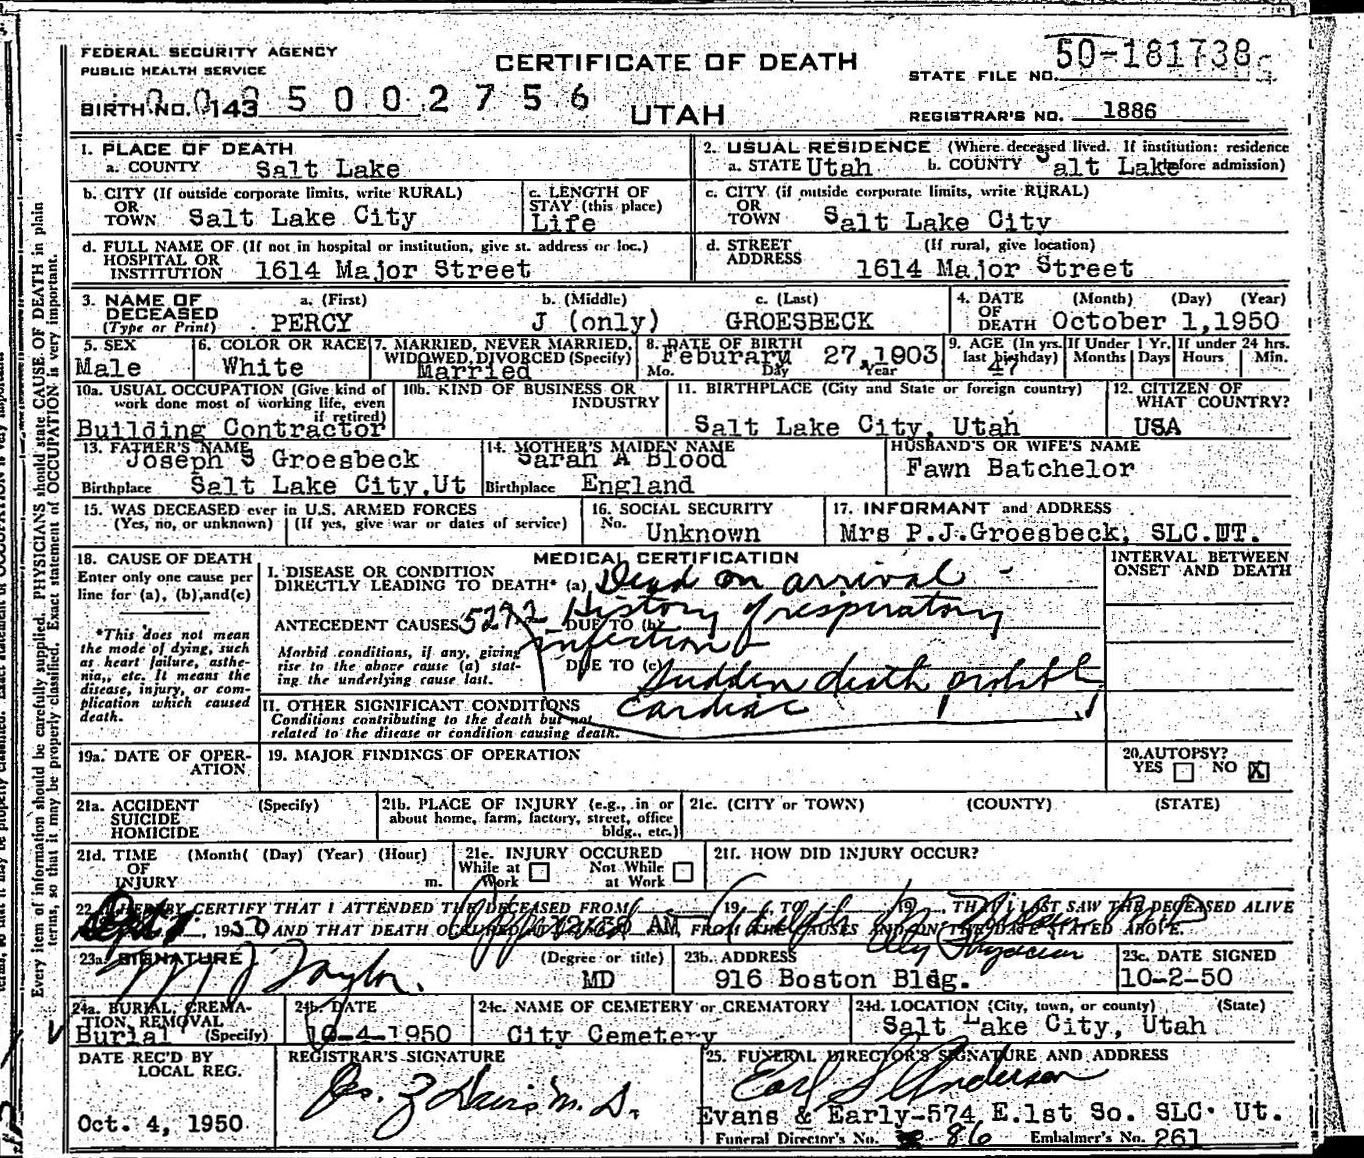 FEDERAL SECURITY AGENCY
PUBLIC HEALTH SERVICE
CERTIFICATE OF DEATH
UTAH
STATE FILE NO. 50-181738
BIRTH NO. 143 5002756
REGISTRAR'S NO. 1886
Every item of information should be carefully supplied. PHYSICIANS should state CAUSE OF DEATH in plain
terms, so that it may be properly classified. Exact statement of OCCUPATION is very important.
1. PLACE OF DEATH
a. COUNTY Salt Lake
2. USUAL RESIDENCE (Where deceased lived. If institution: residence
a. STATE Utah b. COUNTY Salt Lake before admission)
b. CITY (If outside corporate limits, write RURAL)
OR
TOWN Salt Lake City
c. LENGTH OF
STAY (this place)
Life
c. CITY (if outside corporate limits, write RURAL)
OR
TOWN Salt Lake City
d. FULL NAME OF (If not in hospital or institution, give st. address or loc.)
HOSPITAL OR
INSTITUTION 1614 Major Street
d. STREET (If rural, give location)
ADDRESS 1614 Major Street
3. NAME OF
DECEASED
(Type or Print)
a. (First) b. (Middle) c. (Last)
PERCY J (only) GROESBECK
4. DATE (Month) (Day) (Year)
OF
DEATH October 1,1950
5. SEX
Male
6. COLOR OR RACE
White
7. MARRIED, NEVER MARRIED,
WIDOWED, DIVORCED (Specify)
Married
8. DATE OF BIRTH
Feburary 27,1903
Mo. Day Year
9. AGE (In yrs. last birthday) 47
If Under 1 Yr. Months Days
If under 24 hrs. Hours Min.
10a. USUAL OCCUPATION (Give kind of
work done most of working life, even
if retired)
Building Contractor
10b. KIND OF BUSINESS OR
INDUSTRY
11. BIRTHPLACE (City and State or foreign country)
Salt Lake City, Utah
12. CITIZEN OF
WHAT COUNTRY?
USA
13. FATHER'S NAME
Joseph S Groesbeck
Birthplace Salt Lake City,Ut
14. MOTHER'S MAIDEN NAME
Sarah A Blood
Birthplace England
HUSBAND'S OR WIFE'S NAME
Fawn Batchelor
15. WAS DECEASED ever in U.S. ARMED FORCES
(Yes, no, or unknown) (If yes, give war or dates of service)
16. SOCIAL SECURITY
No. Unknown
17. INFORMANT and ADDRESS
Mrs P.J.Groesbeck, SLC.UT.
18. CAUSE OF DEATH
Enter only one cause per
line for (a), (b),and(c)
*This does not mean
the mode of dying, such
as heart failure, asthe-
nia,, etc. It means the
disease, injury, or com-
plication which caused
death.
MEDICAL CERTIFICATION
I. DISEASE OR CONDITION
DIRECTLY LEADING TO DEATH* (a) Dead on arrival
ANTECEDENT CAUSES 527.2 DUE TO (b) History of respiratory
infection
Morbid conditions, if any, giving
rise to the above cause (a) stat-
ing the underlying cause last.
DUE TO (c) Sudden death probably
cardiac
II. OTHER SIGNIFICANT CONDITIONS
Conditions contributing to the death but not
related to the disease or condition causing death.
INTERVAL BETWEEN
ONSET AND DEATH
19a. DATE OF OPER-
ATION
19. MAJOR FINDINGS OF OPERATION
20.AUTOPSY?
YES NO X
21a. ACCIDENT (Specify)
SUICIDE
HOMICIDE
21b. PLACE OF INJURY (e.g., in or
about home, farm, factory, street, office
bldg., etc.)
21c. (CITY or TOWN) (COUNTY) (STATE)
21d. TIME (Month( (Day) (Year) (Hour)
OF
INJURY m.
21e. INJURY OCCURED
While at Work Not While at Work
21f. HOW DID INJURY OCCUR?
22. I HEREBY CERTIFY THAT I ATTENDED THE DECEASED FROM 19 TO 19 , THAT I LAST SAW THE DECEASED ALIVE
Sept 1 , 1950 AND THAT DEATH OCCURED AT AM, FROM THE CAUSES AND ON THE DATE STATED ABOVE.
Approved
City Physician
23a. SIGNATURE (Degree or title)
Taylor. MD
23b. ADDRESS
916 Boston Bldg.
23c. DATE SIGNED
10-2-50
24a. BURIAL, CREMA-
TION, REMOVAL
Burial (Specify)
24b. DATE
10-4-1950
24c. NAME OF CEMETERY or CREMATORY
City Cemetery
24d. LOCATION (City, town, or county) (State)
Salt Lake City, Utah
DATE REC'D BY
LOCAL REG.
Oct. 4, 1950
REGISTRAR'S SIGNATURE
25. FUNERAL DIRECTOR'S SIGNATURE AND ADDRESS
Earl S Anderson
Evans & Early-574 E.1st So. SLC. Ut.
Funeral Director's No. 86 Embalmer's No. 261